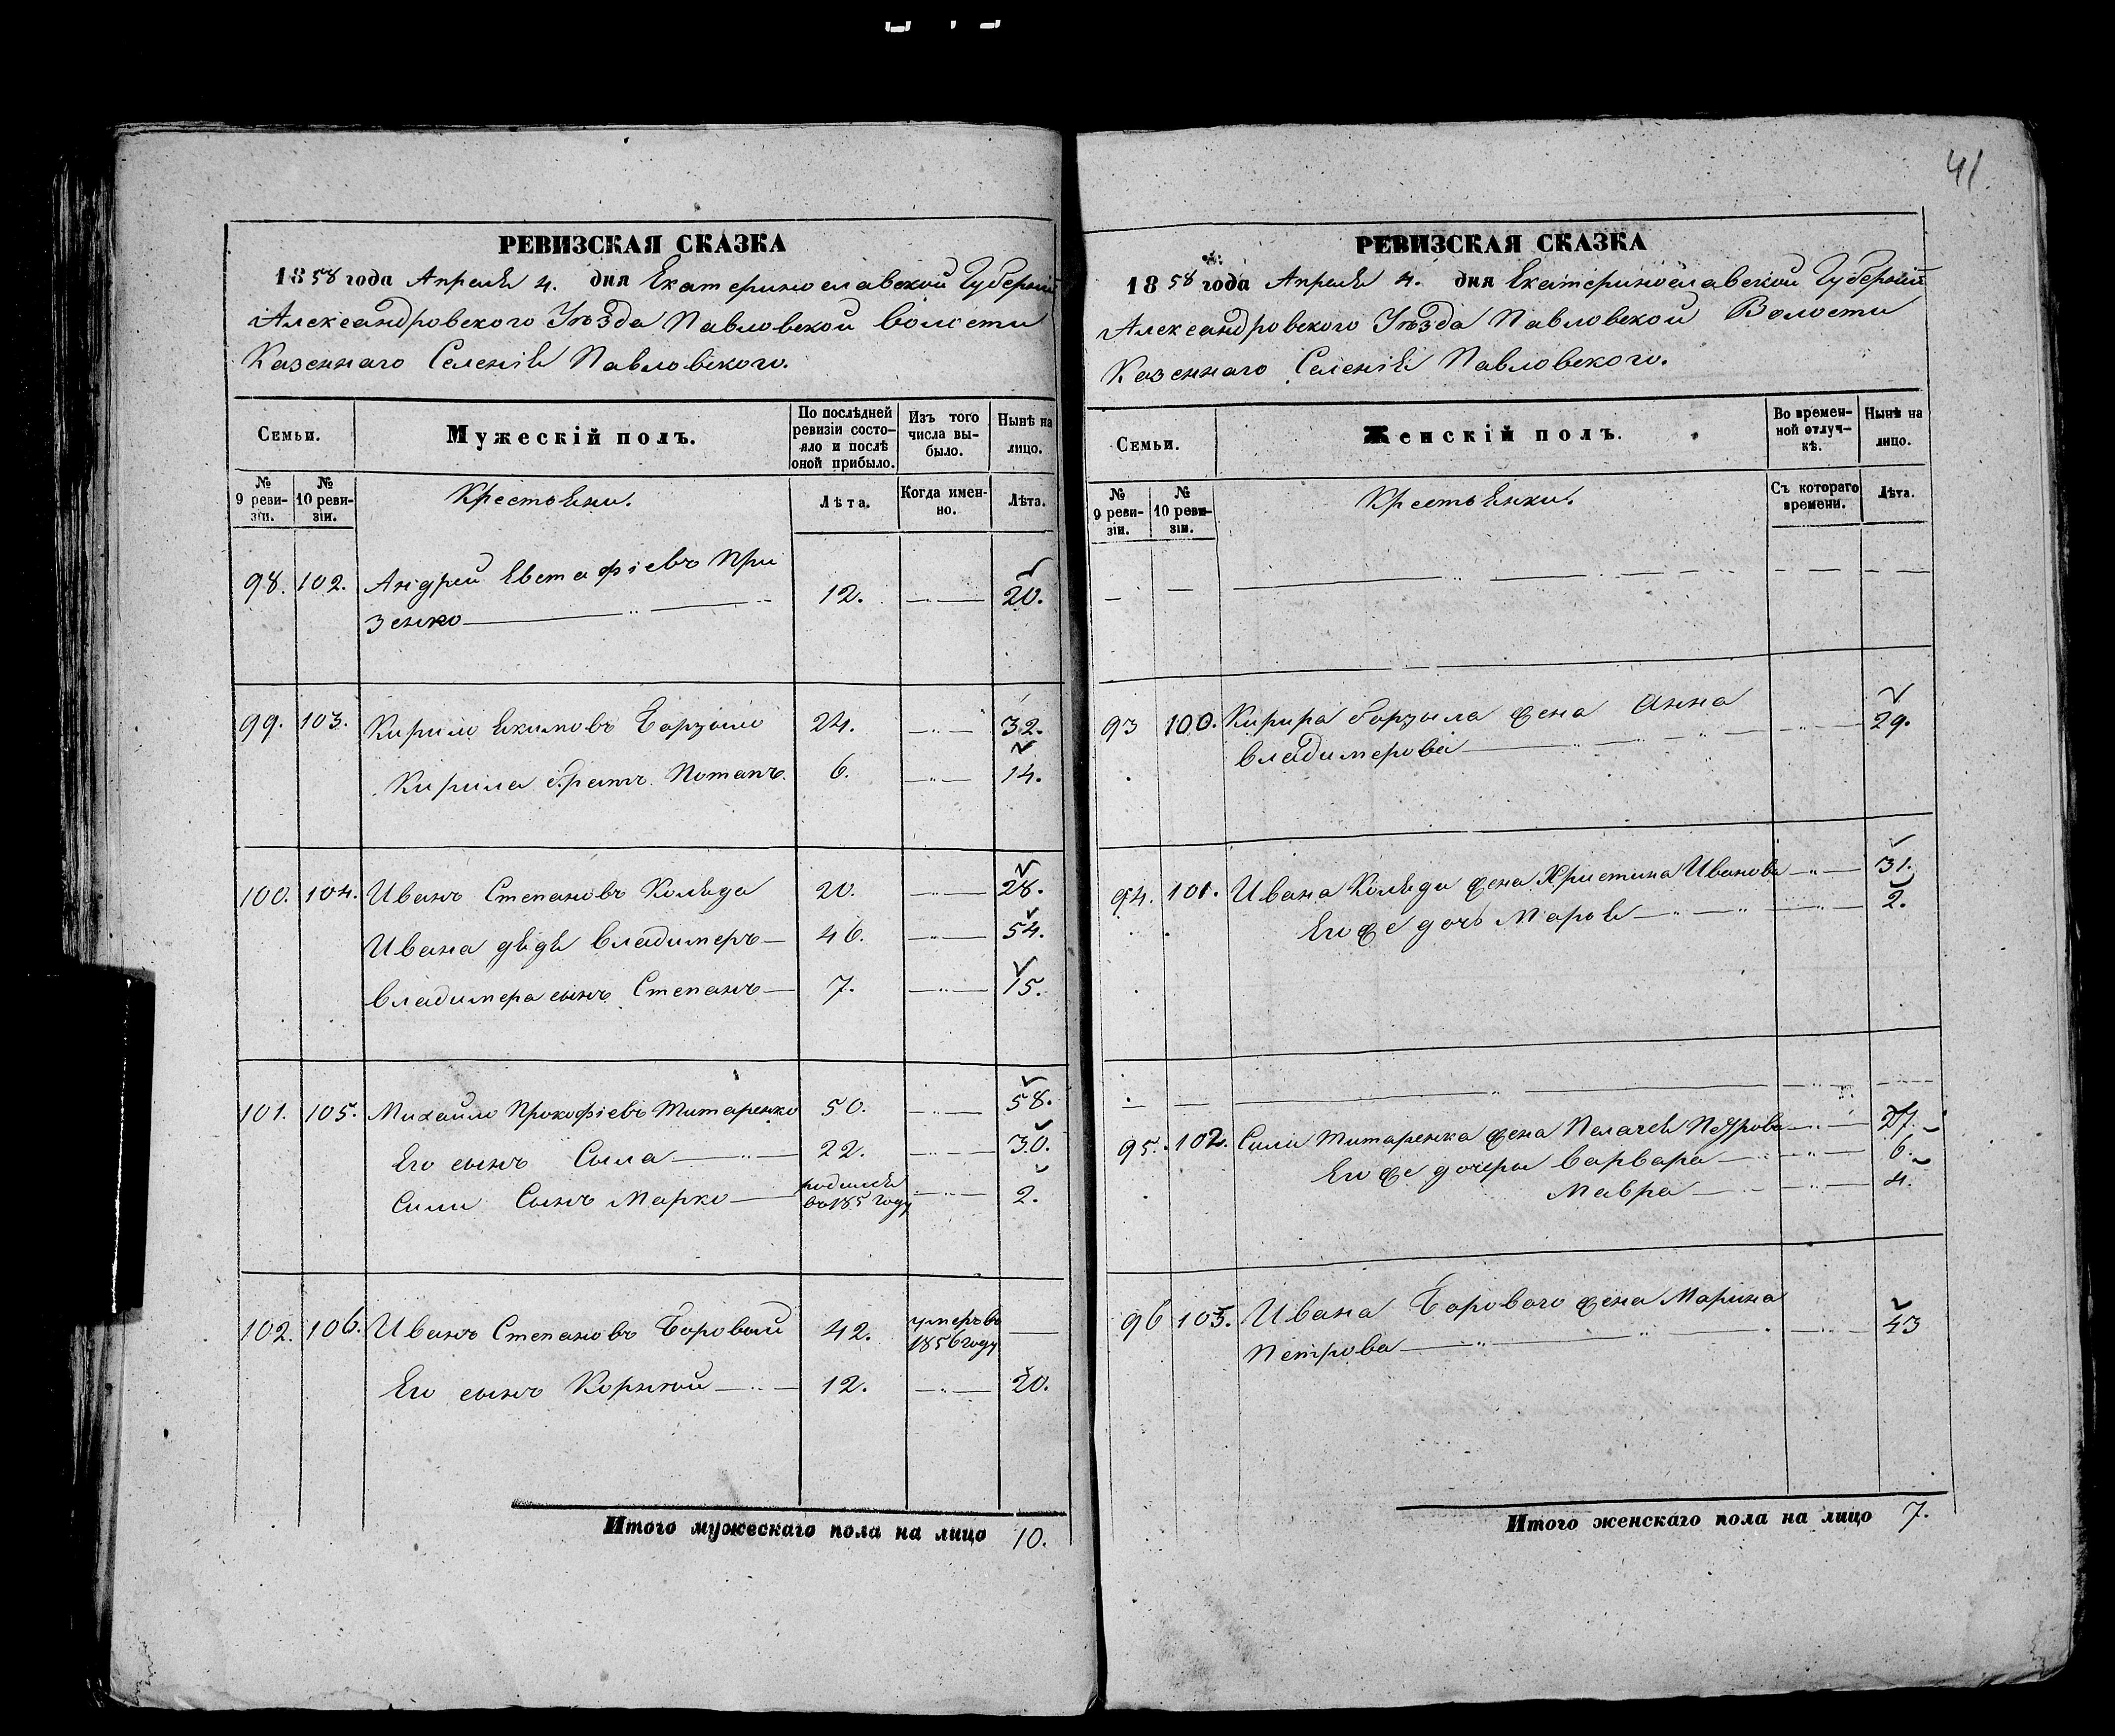 41
РЕВИЗСКАЯ СКАЗКА
1858 года Апреля 4. дня Екатеринославской Губерніи
Александровского Уѣзда Павловской Волости
Казеннаго Селенія Павловского.
Семьи.
Мужескій полъ.
По послѣдней ревизіи состояло и послѣ оной прибыло.
Изъ того числа выбыло.
Нынѣ на лицо.
№ 9 ревизіи.
№ 10 ревизіи.
Крестьяни.
Лѣта.
Когда именно.
Лѣта.
98. 102. Андрей Евстафіевъ При
зенко 12. 20.
99. 103. Кирило Екимовъ Борзыло 24. 32.
Кирила братъ Потапъ. 6. 14.
100. 104. Иванъ Степановъ Коляда 20. 28.
Ивана дядя Владимеръ 46. 54.
Владимера сынъ Степанъ 7. 15.
101. 105. Михайло Прокофіевъ Титаренко 50. 58.
Его сынъ Сыла 22. 30.
Силы Сынъ Марко родился 2.
во 185 году
102. 106. Иванъ Степановъ Боровый 42. умеръ въ
1856 году
Его сынъ Корнѣй 12. 20.
Итого мужескаго пола на лицо 10.
РЕВИЗСКАЯ СКАЗКА
1858 года Апреля 4. дня Екатеринославской Губерніи
Александровского Уѣзда Павловской Волости
Казеннаго Селенія Павловского.
Семьи.
Женскій полъ.
Во временной отлучкѣ.
Нынѣ на лицо.
№ 9 ревизіи.
№ 10 ревизіи.
Крестьянки.
Съ котораго времени.
Лѣта.
93 100. Кирира борзыла жена Анна 29.
Владимерова
94. 101. Ивана Коляды жена Христина Иванова 31.
Его же дочь Марья 2.
95. 102. Силы Титаренка жена Пелагея Петрова 27.
Его же дочери Варвара 6.
Мавра 4.
96 103. Ивана Борового жена Марина 43
Петрова
Итого женскаго пола на лицо 7.